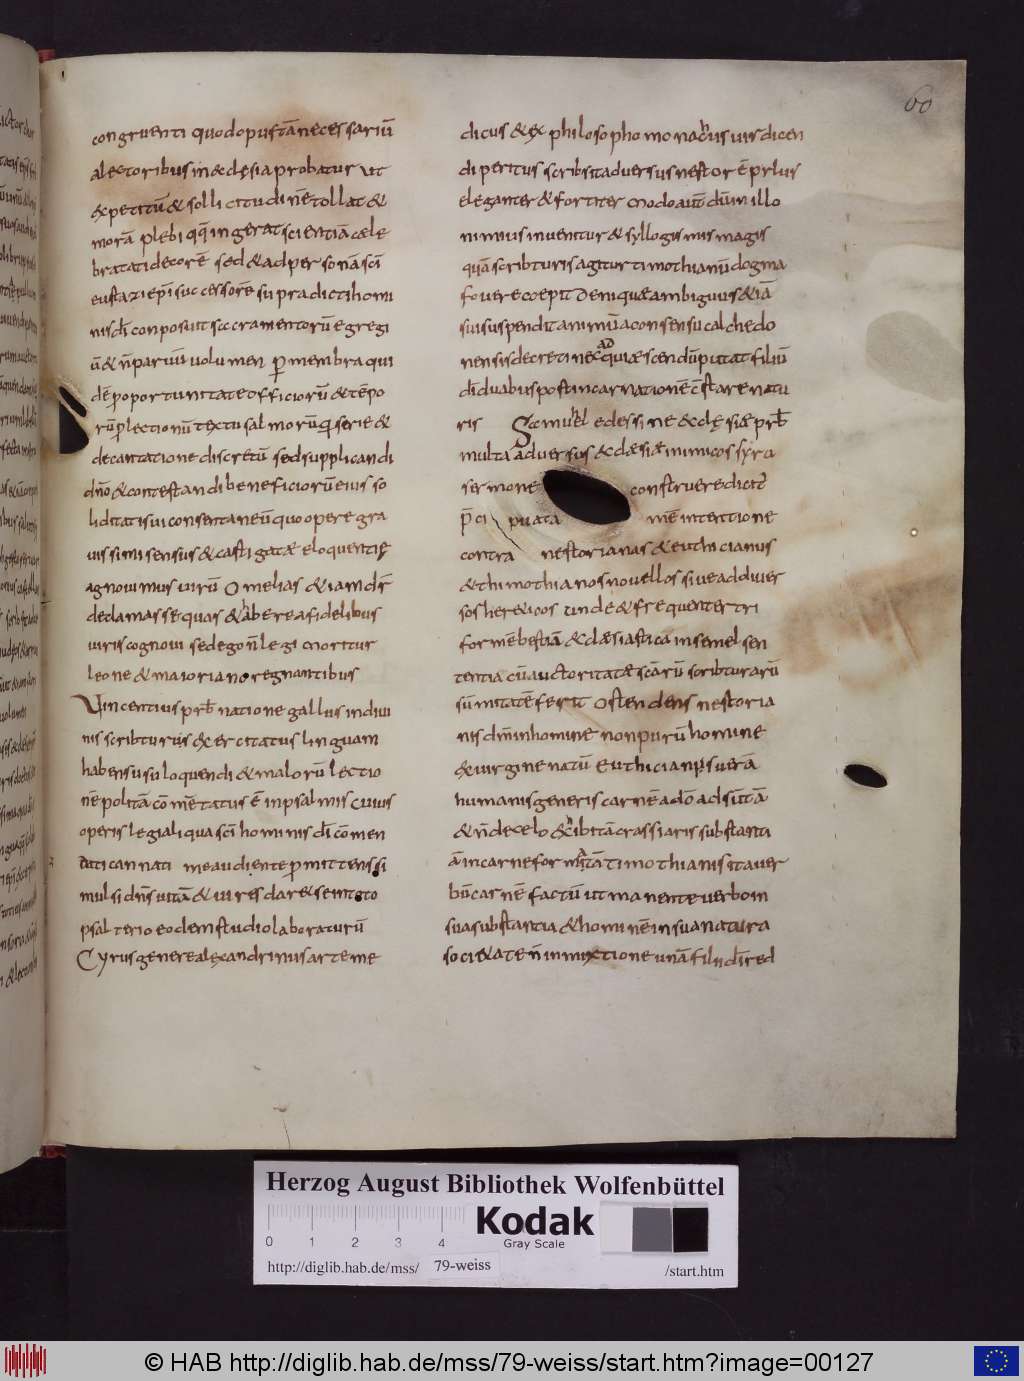 60
congruenti quod opus tā necessariū
a lectoribus in æclesia probatur ut
expetitū & sollicitudinē tollat &
morā plebi quę ingerat scientiā cæle
brata ti decorē sed & ad personā sc̄i
eustazi ep̄i successore supradicti homi
nis dī conposuit saccramentorū egregi
ū & n̄ parum volumen p̱ membra qui
dē p̱ oportunitate officiorū & tēpo
rū p̱ lectionū textu salmorū q̱ serie &
decantatione discretū sed supplicandi
dn̄o & contestandi beneficiorū eius so
liditati sui consentaneū quo opere gra
uissimi sensus & castigatæ eloquentię
agnouimus uirū Omelias & iam dr̄
de damasse quas & ab ere a fidelibus
uiris cognoui sed ego n̄ legi Moritur
leone & maioriano regnantibus
Vincentius prb̄ natione gallus in diui
nis scribturus exercitatus linguam
habens usu loquendi & malorū lectio
nē politā cōmētatus ē in psalmis cuius
operis legi aliqua sc̄i hominis dī cōmen
dati cannati me audiente p̱mittens si
mul si dn̄s uitā & uires dar& se in toto
psalterio eodem studio laboraturū
Cyrus genere alexandrinus arte me
dicus & ex philosopho monachus uir dicen
di peritus scribsit aduersus nestorē prius
eleganter & fortiter Modo aut̄ dūm illo
nimius inuenitur & syllogismis magis
quā scribturis agitur timothianū dogma
fouere coepit Denique ambiguus & iā
sui suspendit animū a consensu calchedo
nensis decreti nec adquiæscendū putat filiū
dī duabus post incarnationē cōstare natu
ris Samuhel edessine æcclęsiæ prb̄
multa aduersus æcclæsiæ inimicos syra
sermone construere dicit̄
p̄cipuata mē intentione
contra nestorianas & euthicianus
& thimothianos nouellos siue ad diuer
sos hereticos unde & frequenter tri
formē bestiā æcclæsiastica in semel sen
tentia cū auctoritatæ scārū scribturarū
sūmitatē ferit Ostendens nestoria
nis dm̄ in homine non purū homine
ex uirgine natū Euthicianis uerā
humanis generis carnē a dō adsūtā
& n̄ de celo exhibitā crassi aris substanti
ā in carne formatā timothianis ita uer
bū carnē factū ut manente uerbo in
sua substantia & hominē in sua natura
sociætate n̄ inmixtione unā filii dī red
Herzog August Bibliothek Wolfenbüttel
0 1 2 3 4
Kodak
Gray Scale
http://diglib.hab.de/mss/ 79-weiss /start.htm
© HAB http://diglib.hab.de/mss/79-weiss/start.htm?image=00127